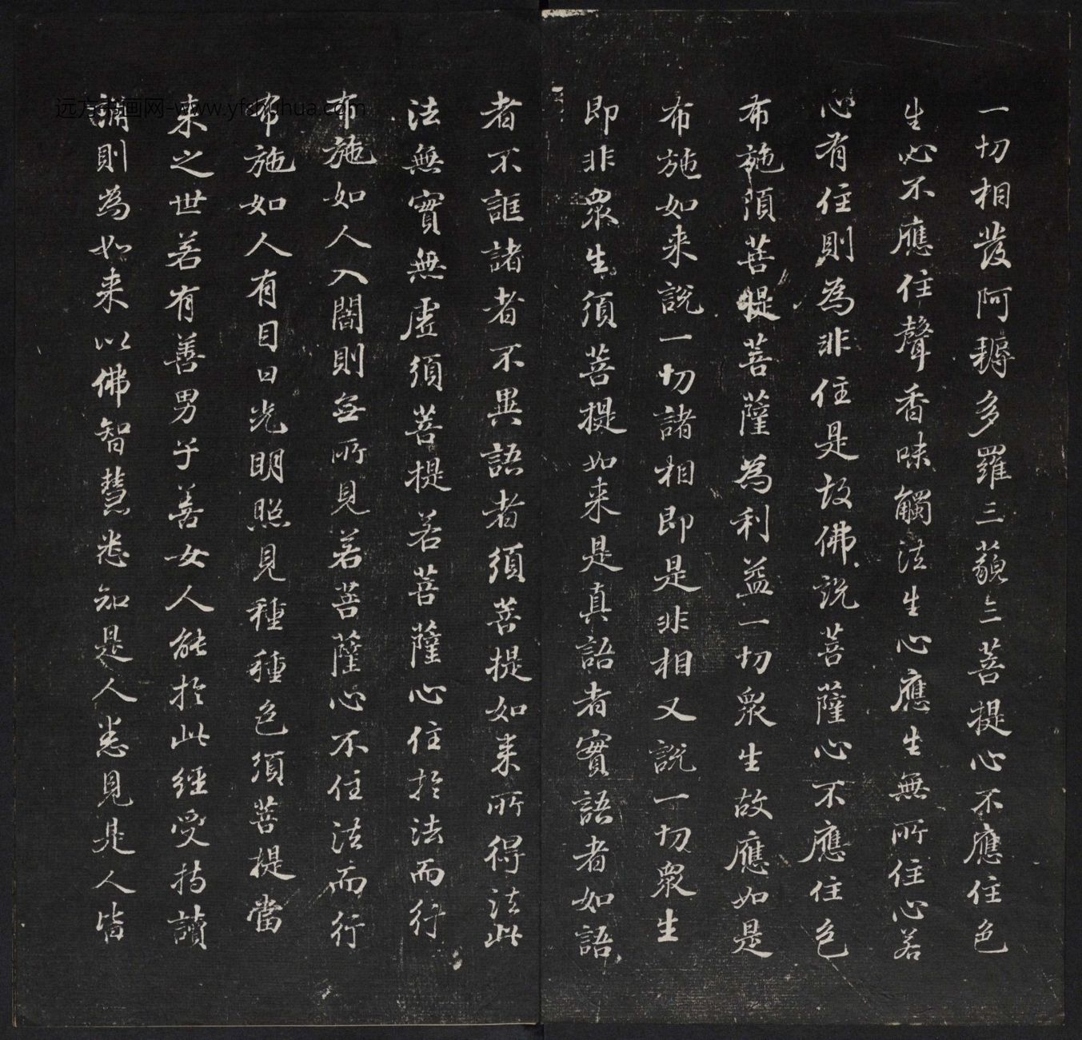 一切相發阿耨多羅三藐三菩提心不應住色
生心不應住聲香味觸法生心應生無所住心若
心有住則為非住是故佛說菩薩心不應住色
布施須菩提菩薩為利益一切眾生故應如是
布施如来說一切諸相即是非相又說一切眾生
即非眾生須菩提如来是真語者實語者如語
者不誑諸者不異語者須菩提如来所得法此
法無實無虛須菩提若菩薩心住於法而行
布施如人入闇則無所見若菩薩心不住法而行
布施如人有目日光明照見種種色須菩提當
来之世若有善男子善女人能於此經受持讀
誦則為如来以佛智慧悉知是人悉見是人皆
远方书画网-www.yfshuhua.com